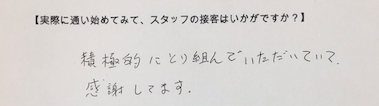 【実際に通い始めてみて、スタッフの接客はいかがですか？】
積極的にとり組んでいただいていて、
感謝してます。